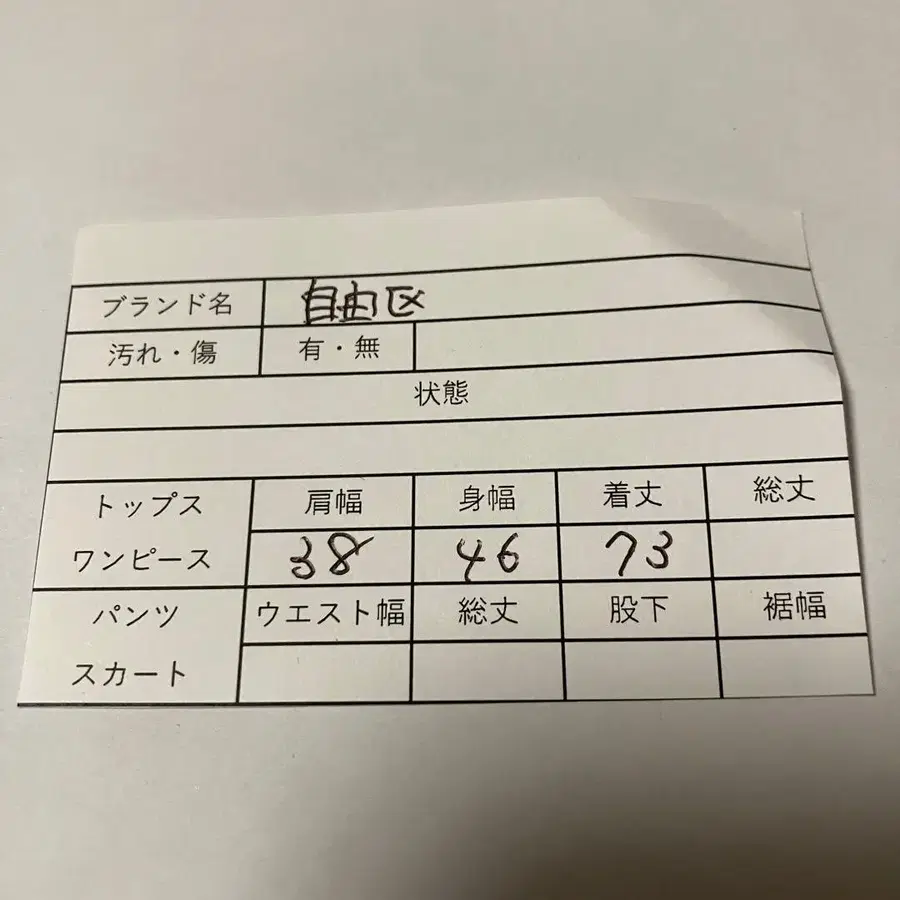 ブランド名 自由区
汚れ・傷 有・無
状態
トップス 肩幅 身幅 着丈 総丈
ワンピース 38 46 73
パンツ ウエスト幅 総丈 股下 裾幅
スカート